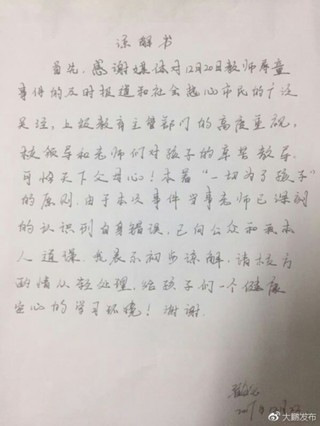 谅解书
首先，感谢媒体对12月20日教师辱童
事件的及时报道和社会热心市民的广泛
关注，上级教育主管部门的高度重视，
校领导和老师们对孩子的辛苦教导，
可怜天下父母心！本着“一切为了孩子”
的原则，由于本次事件当事老师已深刻
的认识到自身错误，已向公众和我本
人道谦，我表示初步谅解，请校方
酌情从轻处理，给孩子们一个健康
安心的学习环境！谢谢
@大鹏发布